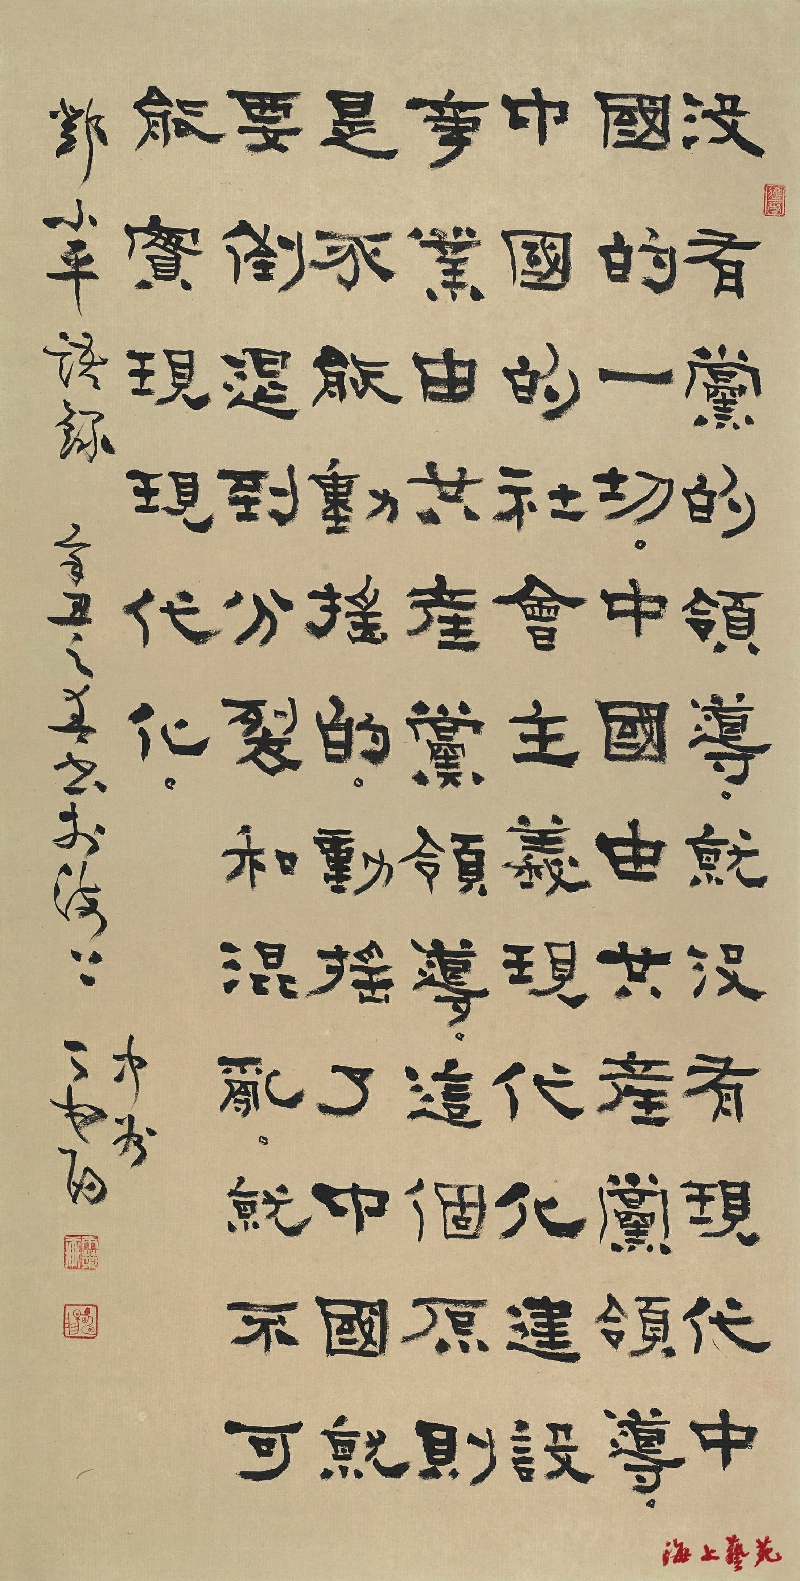 没有黨的領導。就没有現代中
國的一切。中國由共産黨領導。
中國的社會主義現代化建設
事業由共産黨領導。這個原則
是不能動摇的。動摇了中國就
要倒退到分裂和混亂。就不可
能實現現代化。
鄧小平語録 辛丑之春書於海上
中州
海上藝苑